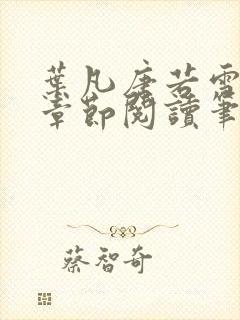 葉凡唐若雪
章節閱讀筆
蔡智奇